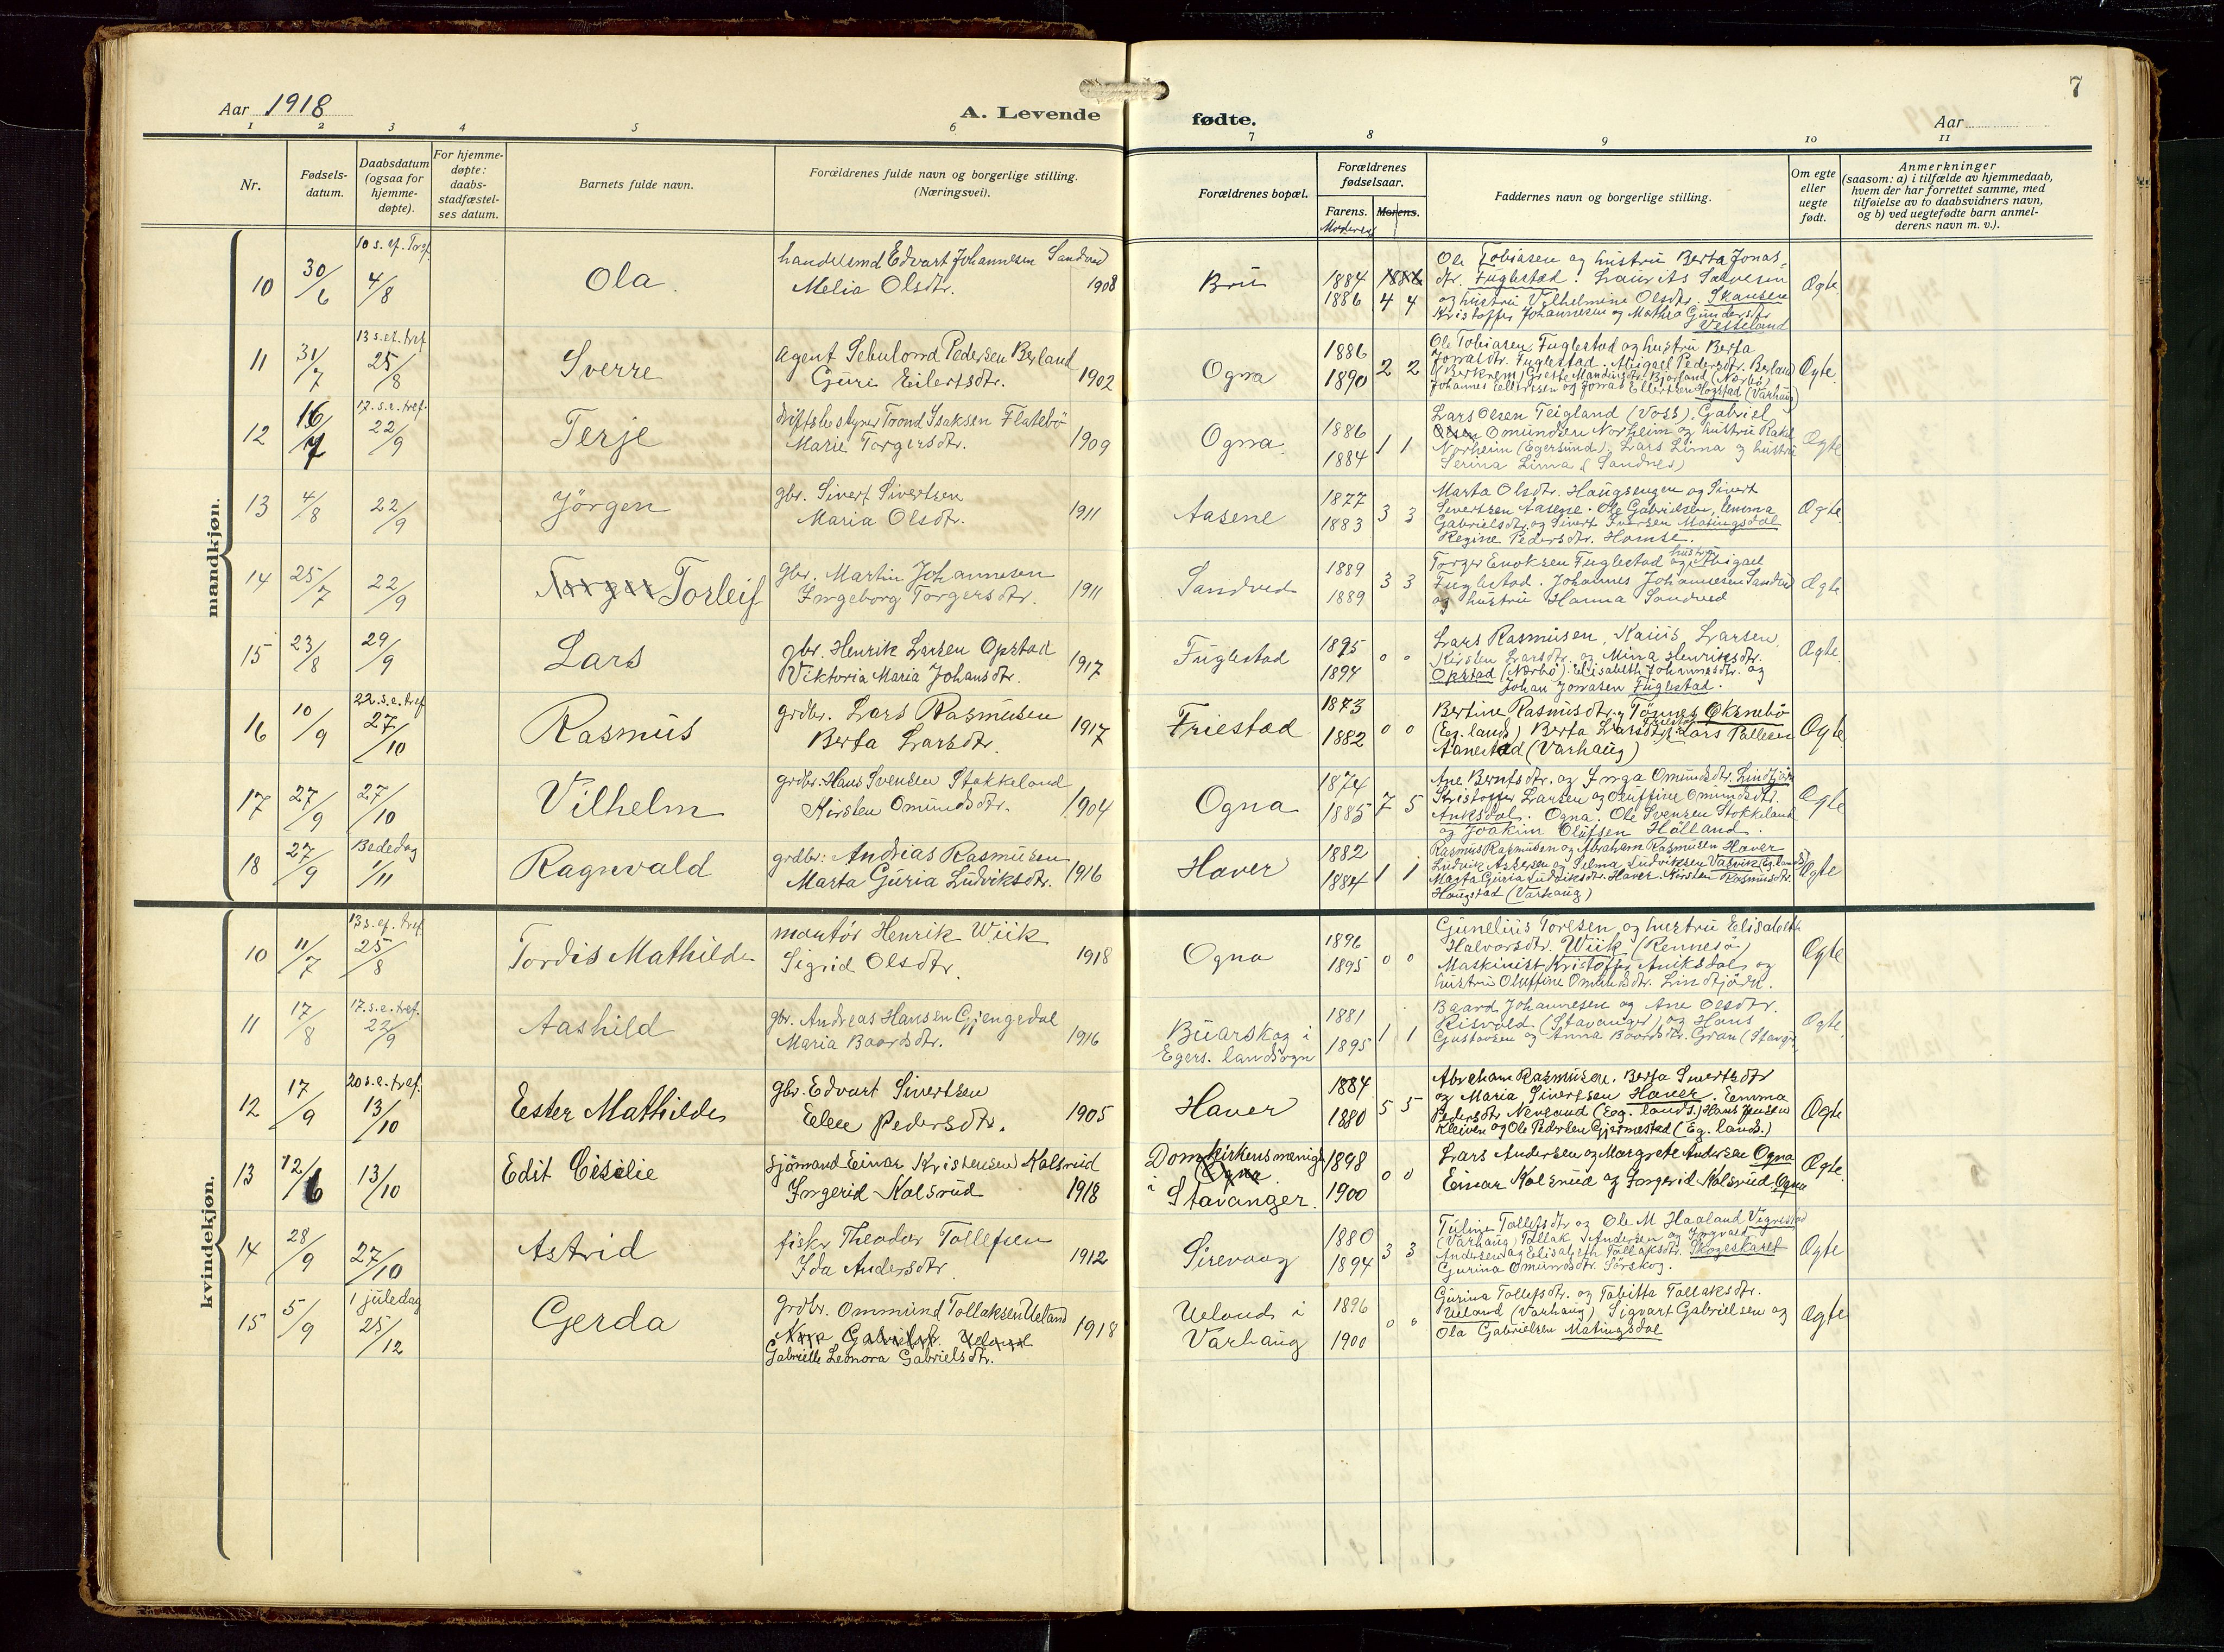 7
Aar 1918
A. Levende fødte.
Aar
1 2 3 4 5 6 7 8 9 10 11
Nr.
Fødsels-
datum.
Daabsdatum
(ogsaa for
hjemme-
døpte).
For hjemme-
døpte:
daabs-
stadfæstel-
ses datum.
Barnets fulde navn.
Forældrenes fulde navn og borgerlige stilling.
(Næringsvei).
Forældrenes bopæl.
Forældrenes
fødselsaar.
Farens. Morens.
Moderens
Faddernes navn og borgerlige stilling.
Om egte
eller
uegte
født.
Anmerkninger
(saasom: a) i tilfælde av hjemmedaab,
hvem der har forrettet samme, med
tilføielse av to daabsvidners navn,
og b) ved uegtefødte barn anmel-
derens navn m. v.).
mandkjøn.
10 30/6 10 s. ef. Tref. 4/8 Ola.
handelsmd Edvart Johannesen Sandved
Melia Olsdtr. 1908
Bru 1884 1886 1886 4 4
Ole Tobiasen og hustru Berta Jonas-
dtr. Fuglestad. Laurits Salvesen
og hustru Vilhelmine Olsdtr. Skansen
Kristoffer Johannesen og Mathea Gundersdtr
Vetteland
Ægte.
11 31/7 13 s. ef. tref. 25/8 Sverre
Agent Sebulond Pedersen Berland
Guri Eilertsdtr. 1902
Ogna 1886 1890 2 2
Ole Tobiasen Fuglestad og hustru Berta
Jonasdtr. Fuglestad. Abigael Pedersdtr. Berland
(Berkrem) Grette Mandiusdtr. Bjorland (Nærbø)
Johannes Ellertsen og Jonas Ellertsen Hogstad (Varhaug)
Ægte.
12 16/7 17. s. e. tref. 22/9 Terje
driftsbestyrer Trond Isaksen Flatebö
Marie Torgersdtr. 1909
Ogna. 1886 1884 1 1
Lars Olsen Teigland (Voss). Gabriel
Olsen Omundsen Norheim og hustru Rakel
Norheim (Egersund). Lars Lima og hustru
Serina Lima (Sandnes)
Ægte
13 4/8 22/9 Jörgen
gbr. Sivert Sivertsen
Maria Olsdtr. 1911
Aasene 1877 1883 3 3
Marta Olsdtr. Haugsengen og Sivert
Sivertsen Aasene. Ole Gabrielsen, Emma
Gabrielsdtr. og Sivert Iversen Matingsdal
Regine Pedersdtr. Homse.
Ægte.
14 25/7 22/9 Torger Torleif
Gbr. Martin Johannesen
Ingeborg Torgersdtr. 1911
Sandved 1889 1889 3 3
Torger Enoksen Fuglestad og hustru Abigael
Fuglestad. Johannes Johannesen Sandved
og hustru Hanna Sandved
Ægte
15 23/8 29/9 Lars
gbr. Henrik Larsen Opstad
Viktoria Maria Johansdtr. 1917
Fuglestad 1895 1894 0 0
Lars Rasmusen, Kaius Larsen,
Kirsten Larsdtr. og Mina Henriksdtr.
Opstad (Nærbø). Elisabeth Johannesdtr. og
Johan Jonasen Fuglestad.
Ægte.
16 10/9 22. s. e. tref 27/10 Rasmus
grdbr. Lars Rasmusen
Berta Larsdtr. 1917
Friestad 1873 1882 0 0
Bertine Rasmusdtr. og Tönnes Øksnebø
(Eg. lands) Berta Larsdtr. Friestad, Lars Pallesen
Aanestad (Varhaug)
Ægte
17 27/9 27/10 Vilhelm
grdbr. Hans Svensen Stokkeland
Kirsten Omundsdtr. 1904
Ogna 1874 1885 7 5
Ane Berntsdtr. og Inga Omundsdtr. Lindtjörn
Kristoffer Larsen og Oluffine Omundsdtr.
Aniksdal. Ogna. Ole Svensen Stokkeland
og Joakim Olufsen Hölland.
Ægte
18 27/9 Bededag 1/11 Ragnvald
grdbr: Andreas Rasmusen
Marta Guria Ludviksdtr. 1916
Haver 1882 1884 1 1
Rasmus Rasmusen og Abraham Rasmusen Haver
Ludvik Assersen og Selma Ludviksen Vasvik (Eg. lands)
Marta Guria Ludviksdtr. Haver. Kirsten Rasmusdtr.
Haugstad (Varhaug)
Ægte
kvindekjøn.
10 11/7 13 s. ef. tref. 25/8 Tordis Mathilde
montör Henrik Wiik
Sigrid Olsdtr. 1918
Ogna 1896 1895 0 0
Gunelius Toresen og hustru Elisabeth
Halvorsdtr. Wiik (Rennesö)
Maskinist Kristoffer Aniksdal og
hustru Oluffine Omundsdtr. Lindtjörn.
Ægte
11 17/8 17. s. e. tref. 22/9 Aashild
gbr. Andreas Hansen Gjengedal
Maria Baardsdtr. 1916
Buarskog i
Egers. landsogn 1881 1895 1 1
Baard Johannesen og Ane Olsdtr.
Risvold (Stavanger) og Hans
Gustavsen og Anna Baardsdtr. Gran (Stavgr.
Ægte
12 17/9 20 s. e. tref. 13/10 Ester Mathilde
gbr. Edvart Sivertsen
Elee Pedersdtr. 1905
Haver 1884 1880 5 5
Abraham Rasmusen. Berta Sivertsdtr
og Maria Sivertsen Haver. Emma
Pedersdtr Nevland (Eg. lands.) Hans Jensen
Kleiven og Ole Pedersen Gjermestad (Eg. lands.)
Ægte
13 12/6 13/10 Edit Cesilie
Sjömand Einar Kristensen Kolsrud
Ingerid Kolsrud 1918
Domkirkens menigh
Ogna
i Stavanger. 1898 1900 0 0
Lars Andersen og Margrete Andersen Ogna
Einar Kolsrud og Ingerid Kolsrud Ogna
Ægte.
14 28/9 27/10 Astrid
fiskr Theodor Tollefsen
Ida Andersdtr 1912
Sirevaag 1880 1894 3 3
Tuline Tollefsdtr og Ole M Haaland Vigrestad
(Varhaug) Tollak Andersen og Ingvald
Andersen og Elisabeth Tollaksdtr. Skogeskaret
Gurina Omundsdtr. Sörskog.
Ægte
15 5/9 1 juledag 25/12 Gerda
grdbr. Ommund Tollaksen Ueland 1918
Nora Gabrielsdtr. Ueland
Gabrielle Leonora Gabrielsdtr.
Ueland i
Varhaug 1896 1900 0 0
Gurina Tollefsdtr. og Tabitta Tollaksdtr.
Ueland (Varhaug) Sigvart Gabrielsen og
Ola Gabrielsen Matingsdal
Ægte